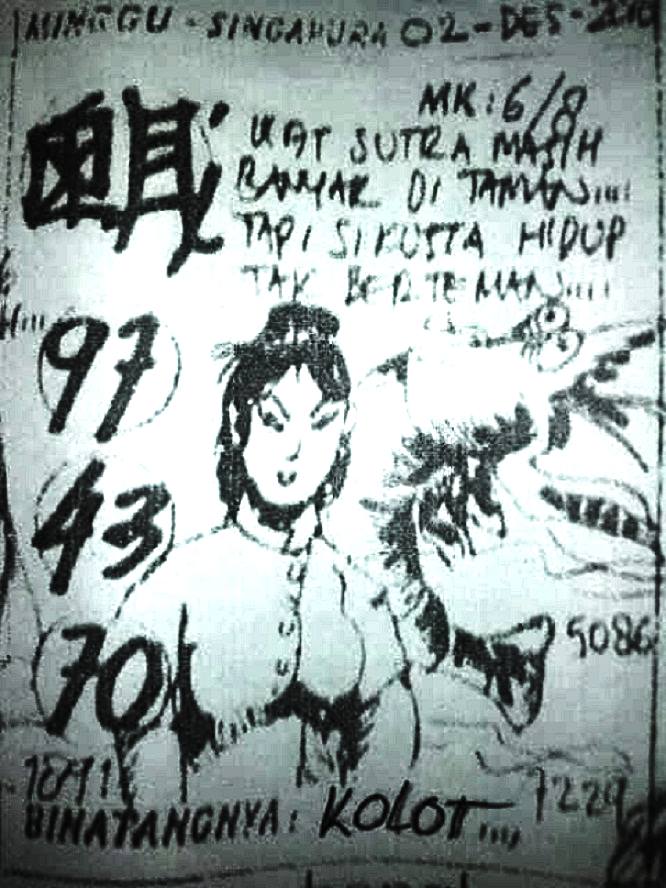 MINGGU - SINGAPURA 02-DES-
MK: 6/8
IKAT SUTRA MASIH
BANYAK DI TAMAN....
TAPI SI KUSTA HIDUP
TAK BERTEMAN....
97
43
70
5086
7229
BINATANGNYA: KOLOT....